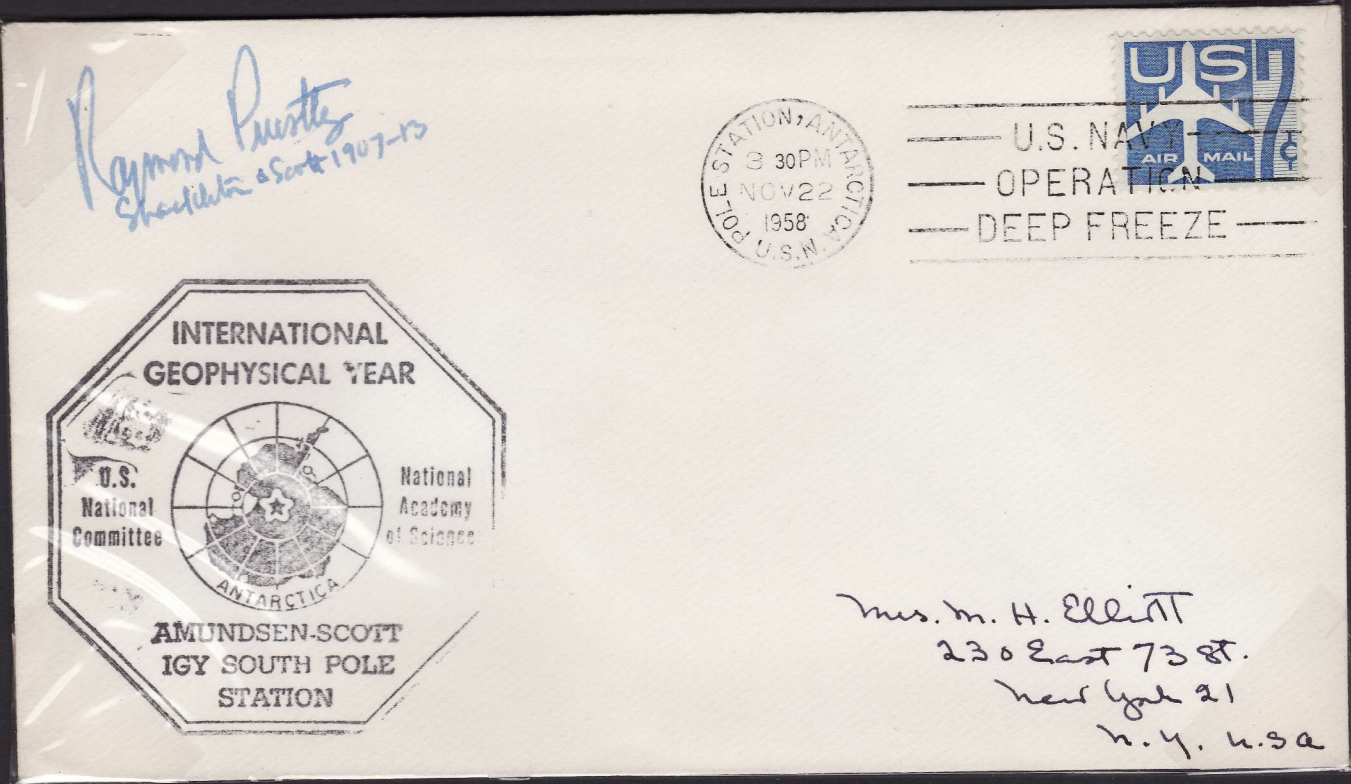 Raymond Priestley
Shackleton & Scott 1907-13
POLE STATION, ANTARCTICA
3 30PM
NOV 22
1958
U.S.N.
US 7¢
AIR MAIL
U.S. NAVY
OPERATION
DEEP FREEZE
INTERNATIONAL
GEOPHYSICAL YEAR
U.S.
National
Committee
National
Academy
of Science
ANTARCTICA
AMUNDSEN-SCOTT
IGY SOUTH POLE
STATION
Mrs. M. H. Elliott
230 East 73 St.
New York 21
N. Y. U.S.A